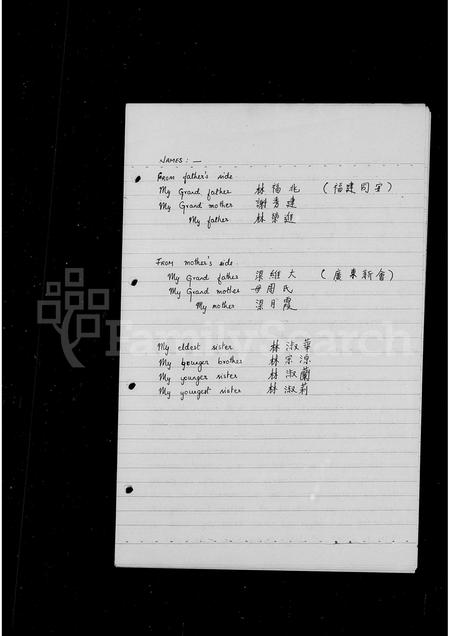 NAMES: —
From father's side
My Grand father 林福兆 (福建同安)
My Grand mother 謝秀建
My father 林榮進
FROM mother's side
My Grand father 梁維大 (廣東新會)
My Grand mother 母周氏
My mother 梁月霞
My eldest sister 林淑華
My younger brother 林宗源
My younger sister 林淑蘭
My youngest sister 林淑莉
FamilySearch